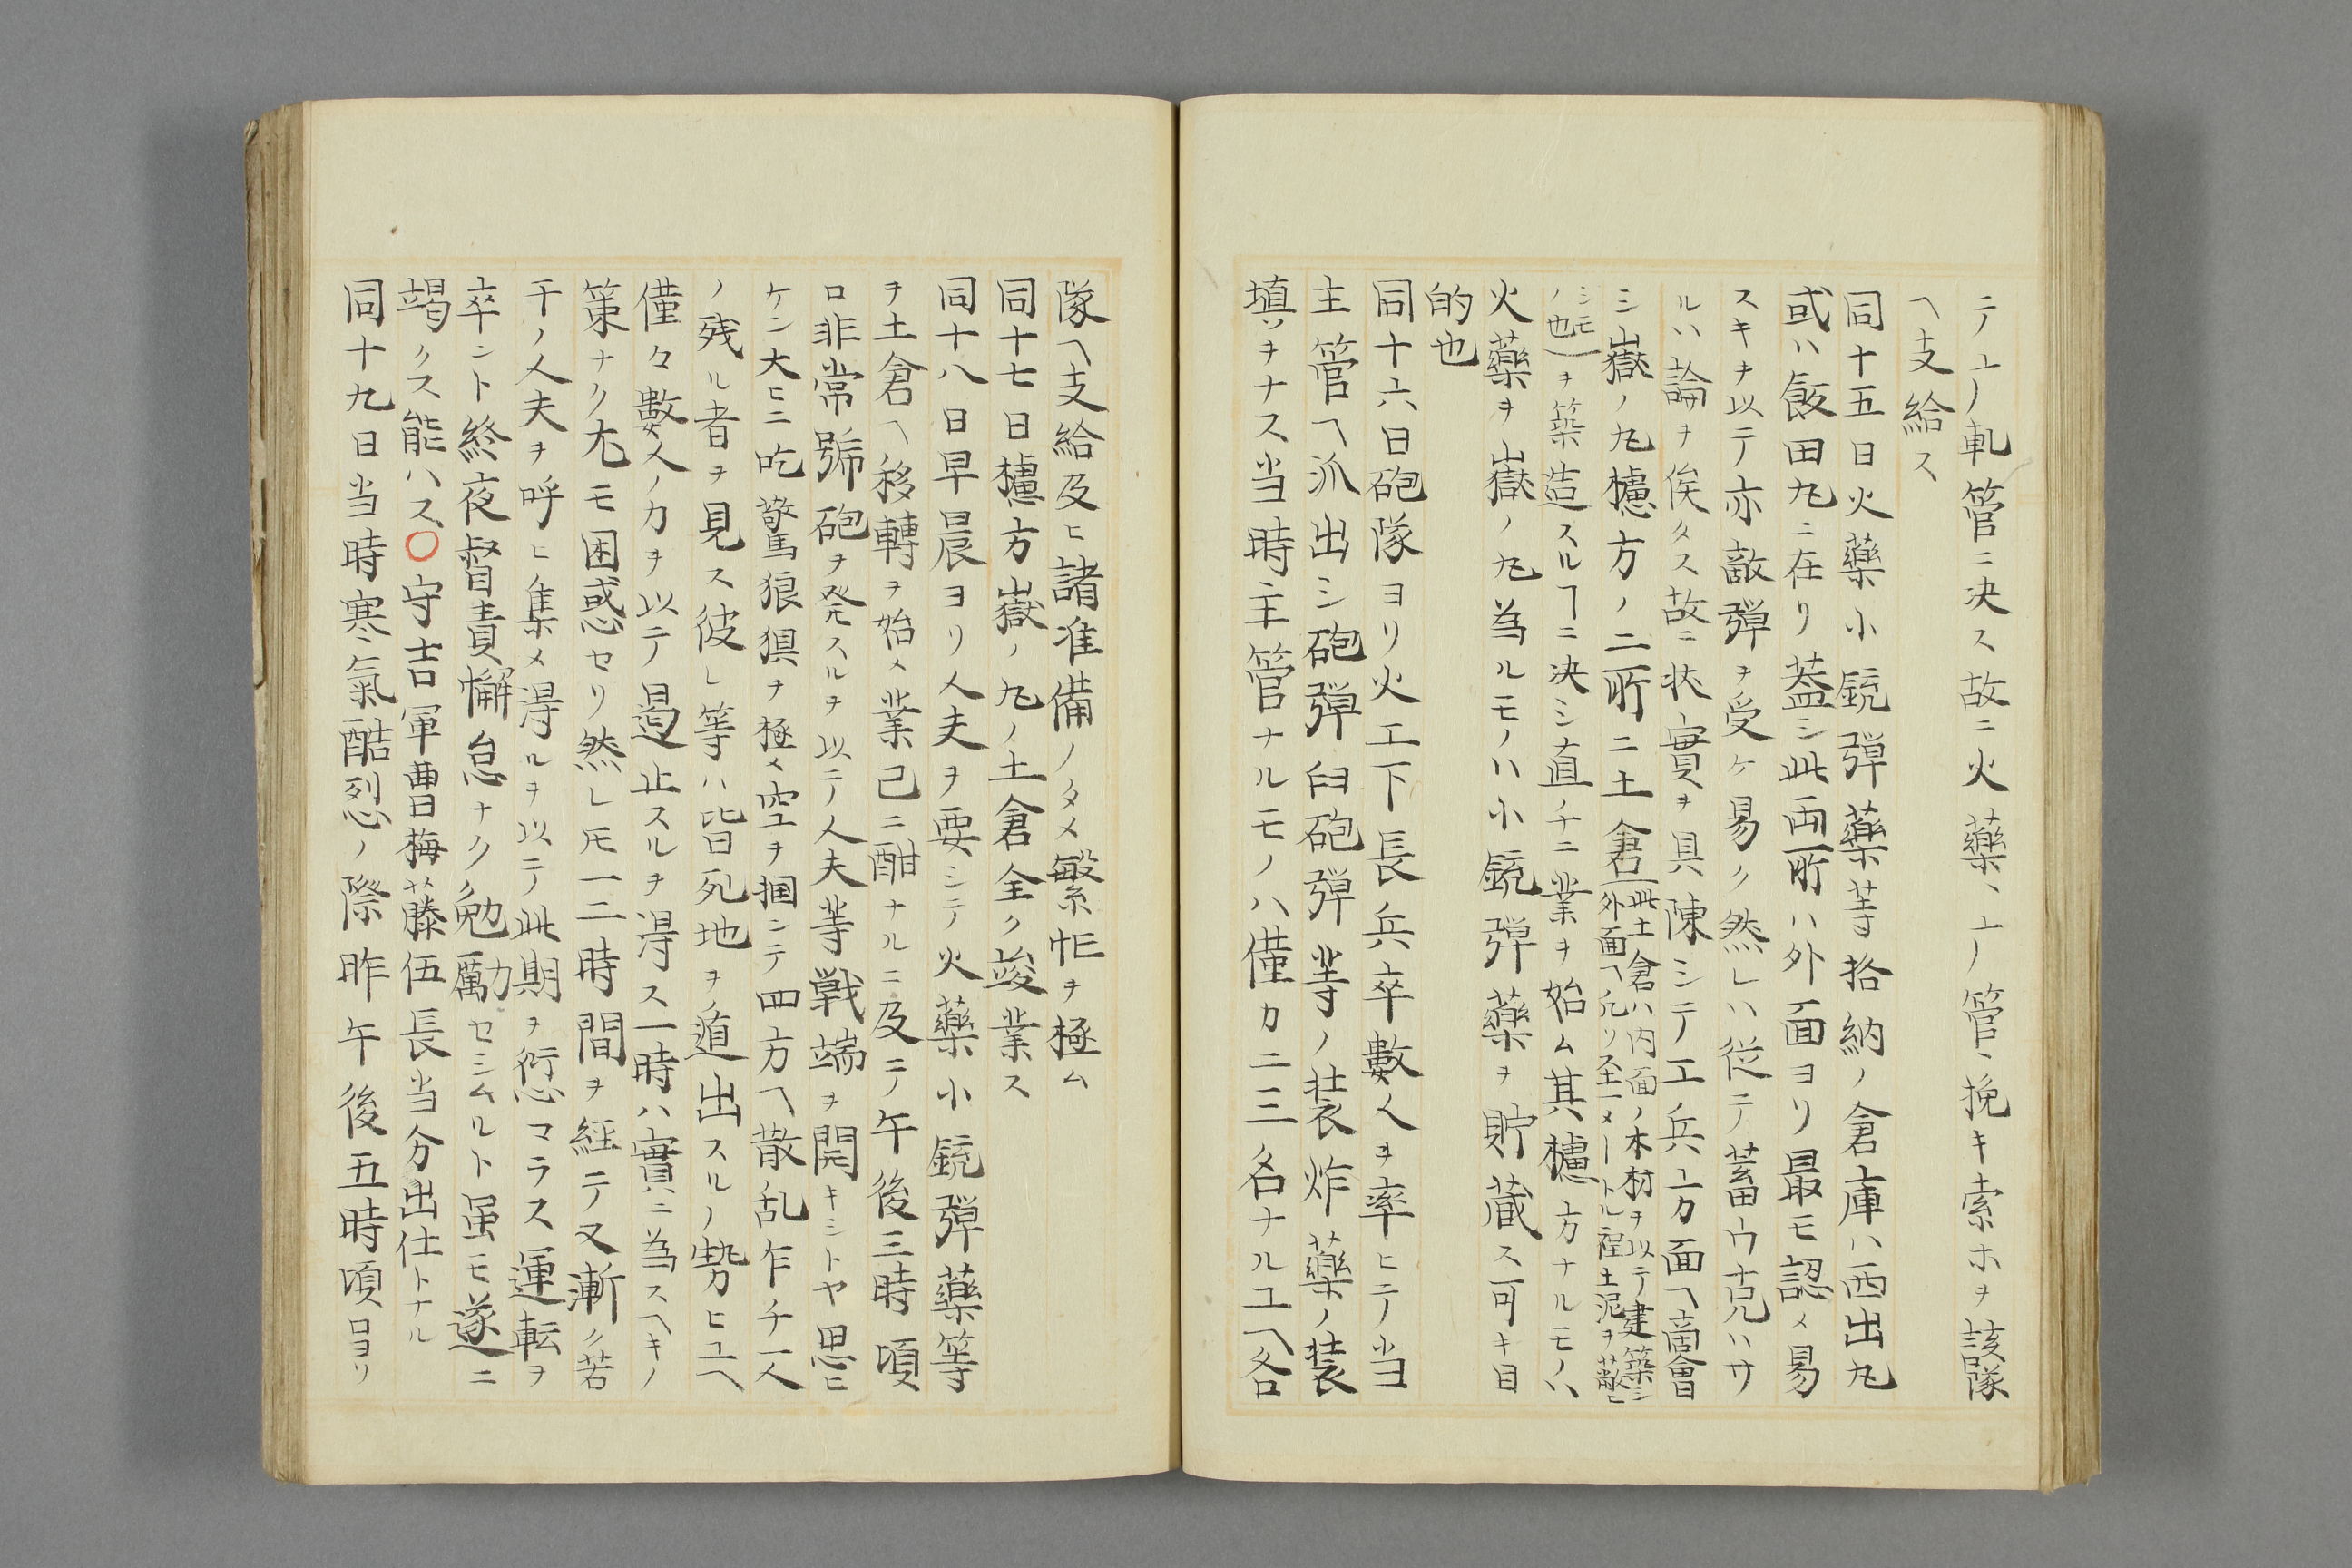 テ上ノ軋管ニ決ス故ニ火藥、上ノ管、挽キ索ホヲ該隊
ヘ支給ス
同十五日火藥小銃彈藥等拾納ノ倉庫ハ西出丸
或ハ飯田丸ニ在リ蓋シ此両所ハ外面ヨリ最モ認メ易
スキヲ以テ亦敵彈ヲ受ケ易ク然レハ従テ蓄ウ克ハサ
ルハ論ヲ俟タス故ニ状實ヲ具陳シテ工兵上方面ヘ商會
シ嶽ノ丸櫨方ノ二所ニ土倉(此土倉ハ内面ノ木材ヲ以テ建築シ
外面ヘ凡リ至一メートル程土泥ヲ蔽ヒ
シモ
ノ也)ヲ築造スルヿニ決シ直チニ業ヲ始ム其櫨方ナルモノハ
火藥ヲ嶽ノ丸為ルモノハ小銃彈藥ヲ貯蔵ス可キ目
的也
同十六日砲隊ヨリ火工下長兵卒數人ヲ率ヒテ当
主管ヘ派出シ砲彈臼砲彈等ノ装炸藥ノ装
填ヲナス当時主管ナルモノハ僅カ二三名ナルユヘ各
隊ヘ支給及ヒ諸准備ノタメ繁忙ヲ極ム
同十七日櫨方嶽ノ丸ノ土倉全ク竣業ス
同十八日早晨ヨリ人夫ヲ要シテ火藥小銃彈藥等
ヲ土倉ヘ移轉ヲ始メ業已ニ酣ナルニ及テ午後三時頃
ロ非常號砲ヲ発スルヲ以テ人夫等戦端ヲ開キシトヤ思ヒ
ケン大ヒニ吃驚狼狽ヲ極メ空ヲ掴ンテ四方ヘ散乱乍チ一人
ノ残ル者ヲ見ス彼レ等ハ皆死地ヲ遁出スルノ勢ヒユヘ
僅々數人ノ力ヲ以テ遏止スルヲ得ス一時ハ實ニ為スヘキノ
策ナク尤モ困惑セリ然レ𪜈一二時間ヲ経テ又漸ク若
干ノ人夫ヲ呼ヒ集メ得ルヲ以テ此期ヲ愆マラス運転ヲ
卒ント終夜督責懈怠ナク勉勵セシムルト虽モ遂ニ
竭クス能ハス〇守吉軍曹梅藤伍長当分出仕トナル
同十九日当時寒氣酷烈ノ際昨午後五時頃ロヨリ